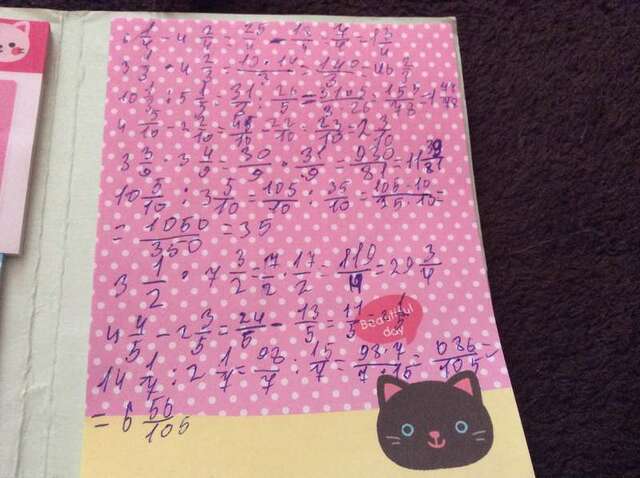 6 1/4 - 4 2/4 = 25/4 - 18/4 = 7/4 = 1 3/4
3 1/3 · 4 2/3 = 10/3 · 14/3 = 140/3 = 46 2/3
10 1/3 : 5 1/5 = 31/3 : 26/5 = 155/78 = 1
4 5/10 - 2 2/10 = 45/10 - 22/10 = 23/10 = 2 3/10
3 3/9 · 3 4/9 = 30/9 · 31/9 = 930/81 = 11 39/81
10 5/10 : 3 5/10 = 105/10 : 35/10 = 105·10/35·10 =
= 1050/350 = 35
3 1/2 · 7 3/2 = 7/2 · 17/2 = 119/4 = 29 3/4
4 4/5 - 2 3/5 = 24/5 - 13/5 = 11/5 = 2 1/5
Beautiful
day
14 1/7 : 2 1/7 = 98/7 : 15/7 = 98·7/7·15 = 686/105 =
= 6 56/105